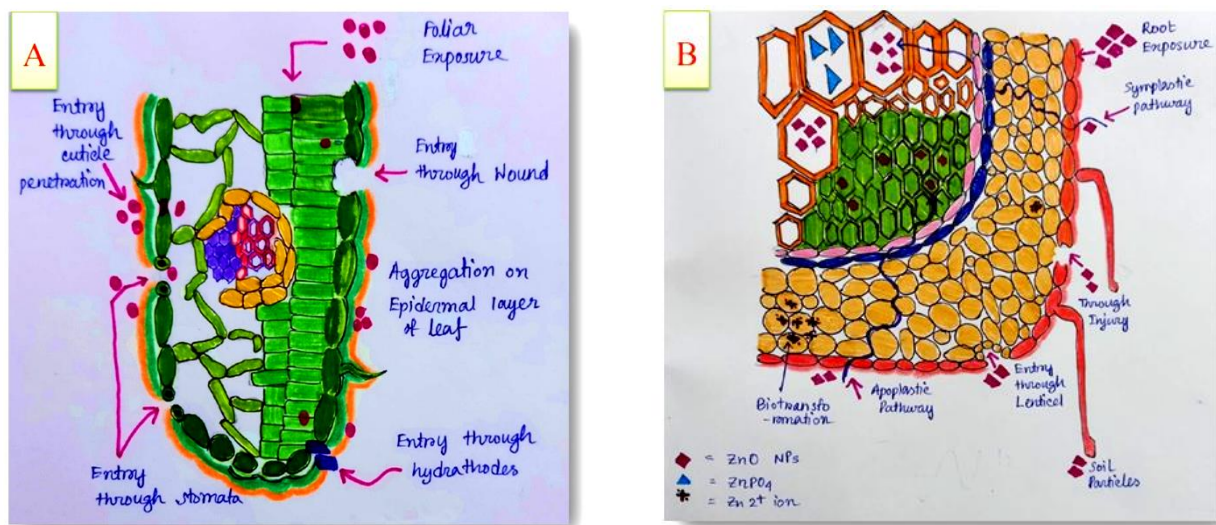 A
Foliar
Exposure
Entry
through
cuticle
penetration
Entry
through Wound
Aggregation on
Epidermal layer
of leaf
Entry through
hydrathodes
Entry
through stomata
B
Root
Exposure
Symplastic
pathway
Through
Injury
Entry
through
Lenticel
Apoplastic
Pathway
Biotransfo
-rmation
Soil
Particles
= ZnO NPs
= ZnPO4
= Zn 2+ ion